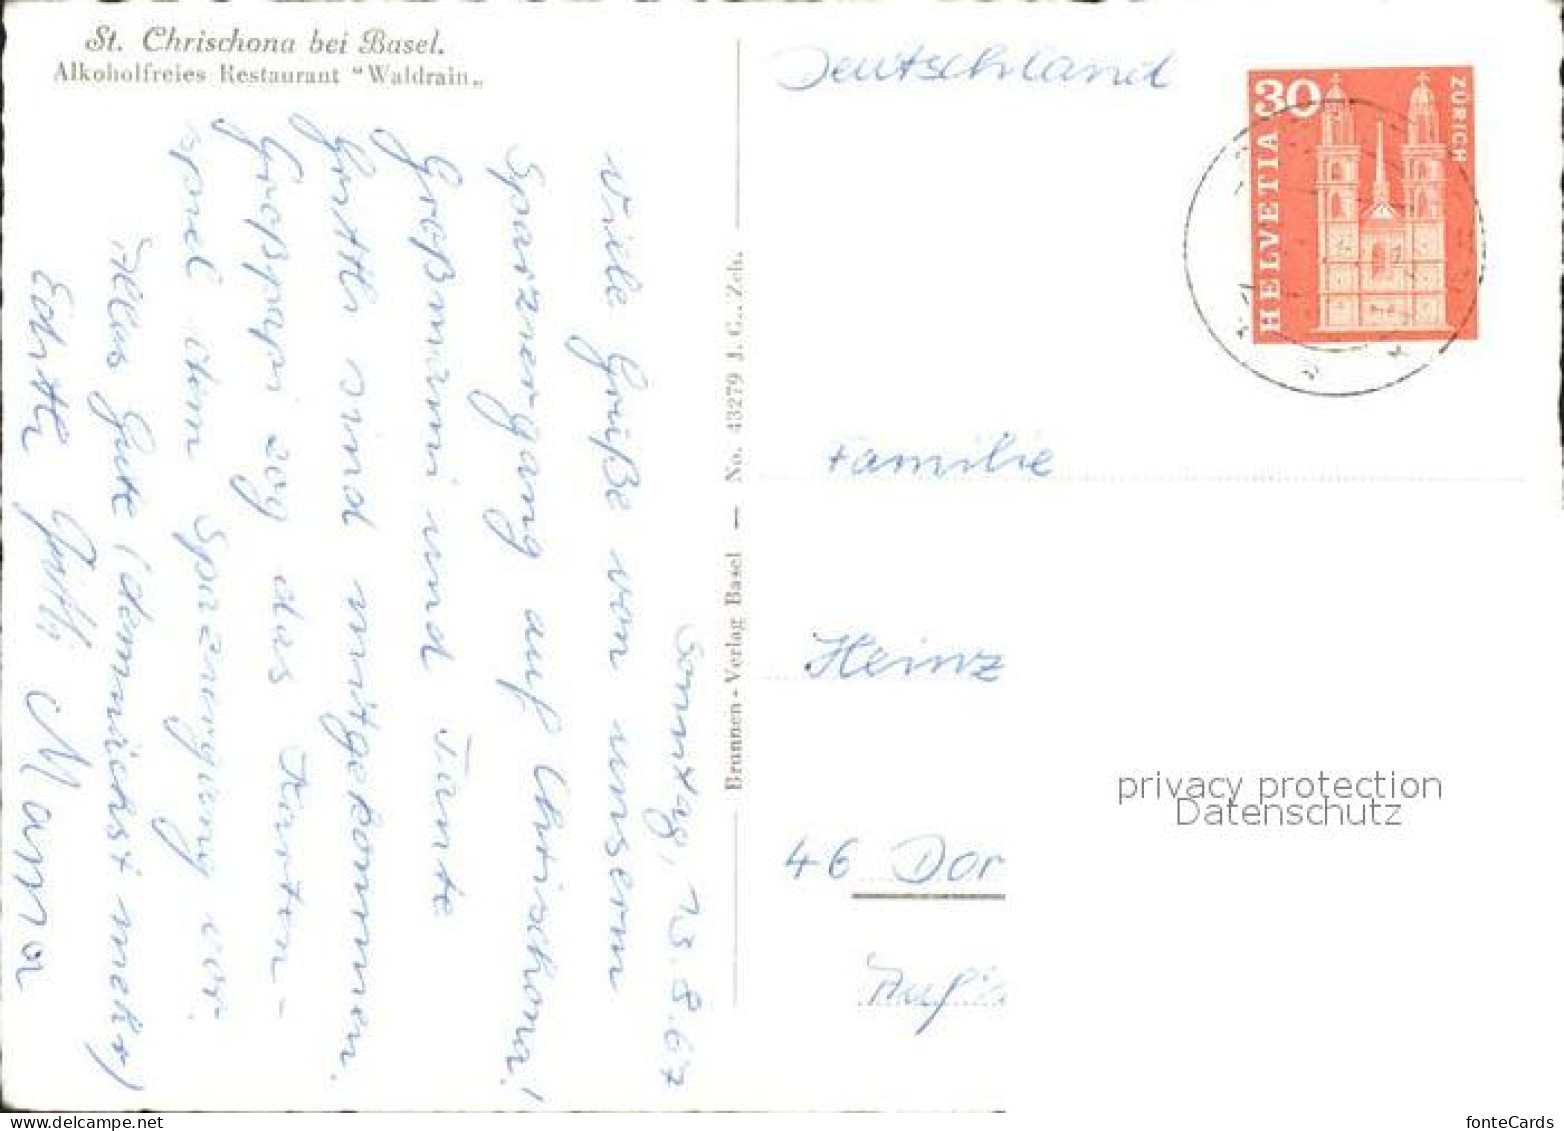 St. Chrischona bei Basel.
Alkoholfreies Restaurant "Waldrain„
Sonntag, 13.8.67
Viele Grüße von unserm
Spaziergang auf Chrischona!
Großmammi und Tante
sind mitgekommen.
Großpapi zog das Karten-
spiel dem Spaziergang vor.
Alles Gute (demnächst mehr)
Mama
Brunnen-Verlag Basel — No. 43279 J. G., Zch.
Deutschland
30
HELVETIA
ZÜRICH
Familie
Heinz
46 Dor
privacy protection
Datenschutz
delcampe.net
fonteCards